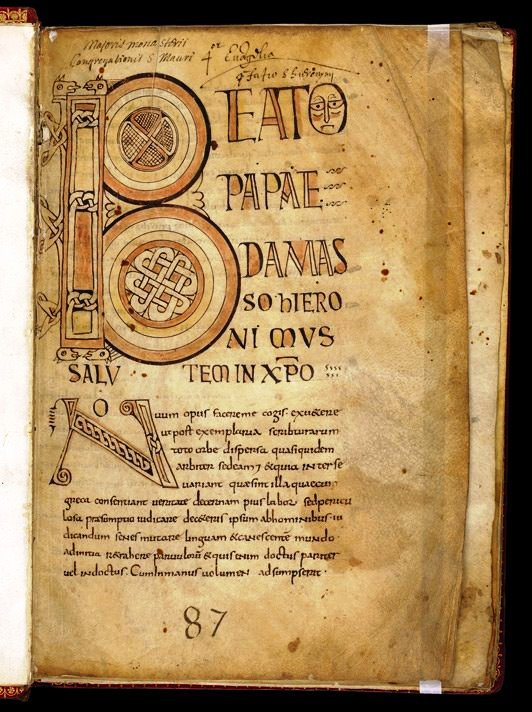 Majoris monasterii
Congregationis S Mauri 4or Evāgelia
p̄fatio S hieronimi
BEATO
PAPAE
DAMAS
SO hIERO
NIMVS
SALVTEM IN XP̄O
Nouum opus facereme cogis. exuetere
ut post exemplaria scribturarum
toto orbe dispersa quasiquidem
arbiter sedeam 7 &quia interse
uariant quaesint illa quaecum
greca consentiant ueritate decernam pius labor sedpericu
losa prasumptio iudicare deceteris ipsum abhominibus iu
dicandum senes mutare linguam &canescente mundo
adinitia retrahere paruulorū &quis enim doctus pariter
uel indoctus. Cum inmanus uolumen adsumpserit
87